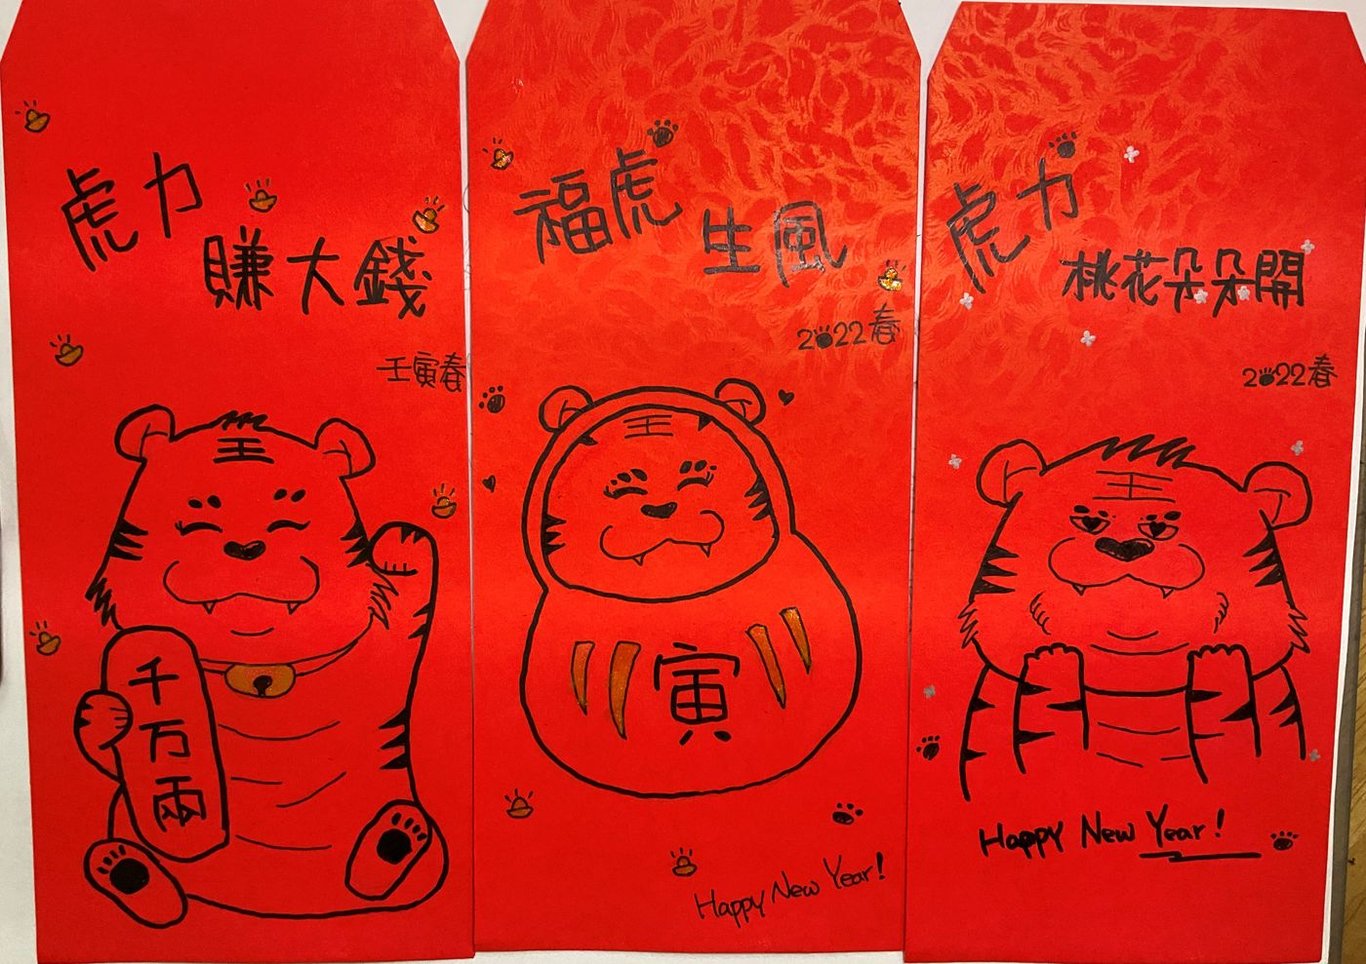 虎力
賺大錢
壬寅春
王
千万兩
福虎
生風
2022春
王
寅
Happy New Year!
虎力
桃花朵朵開
2022春
王
Happy New Year!